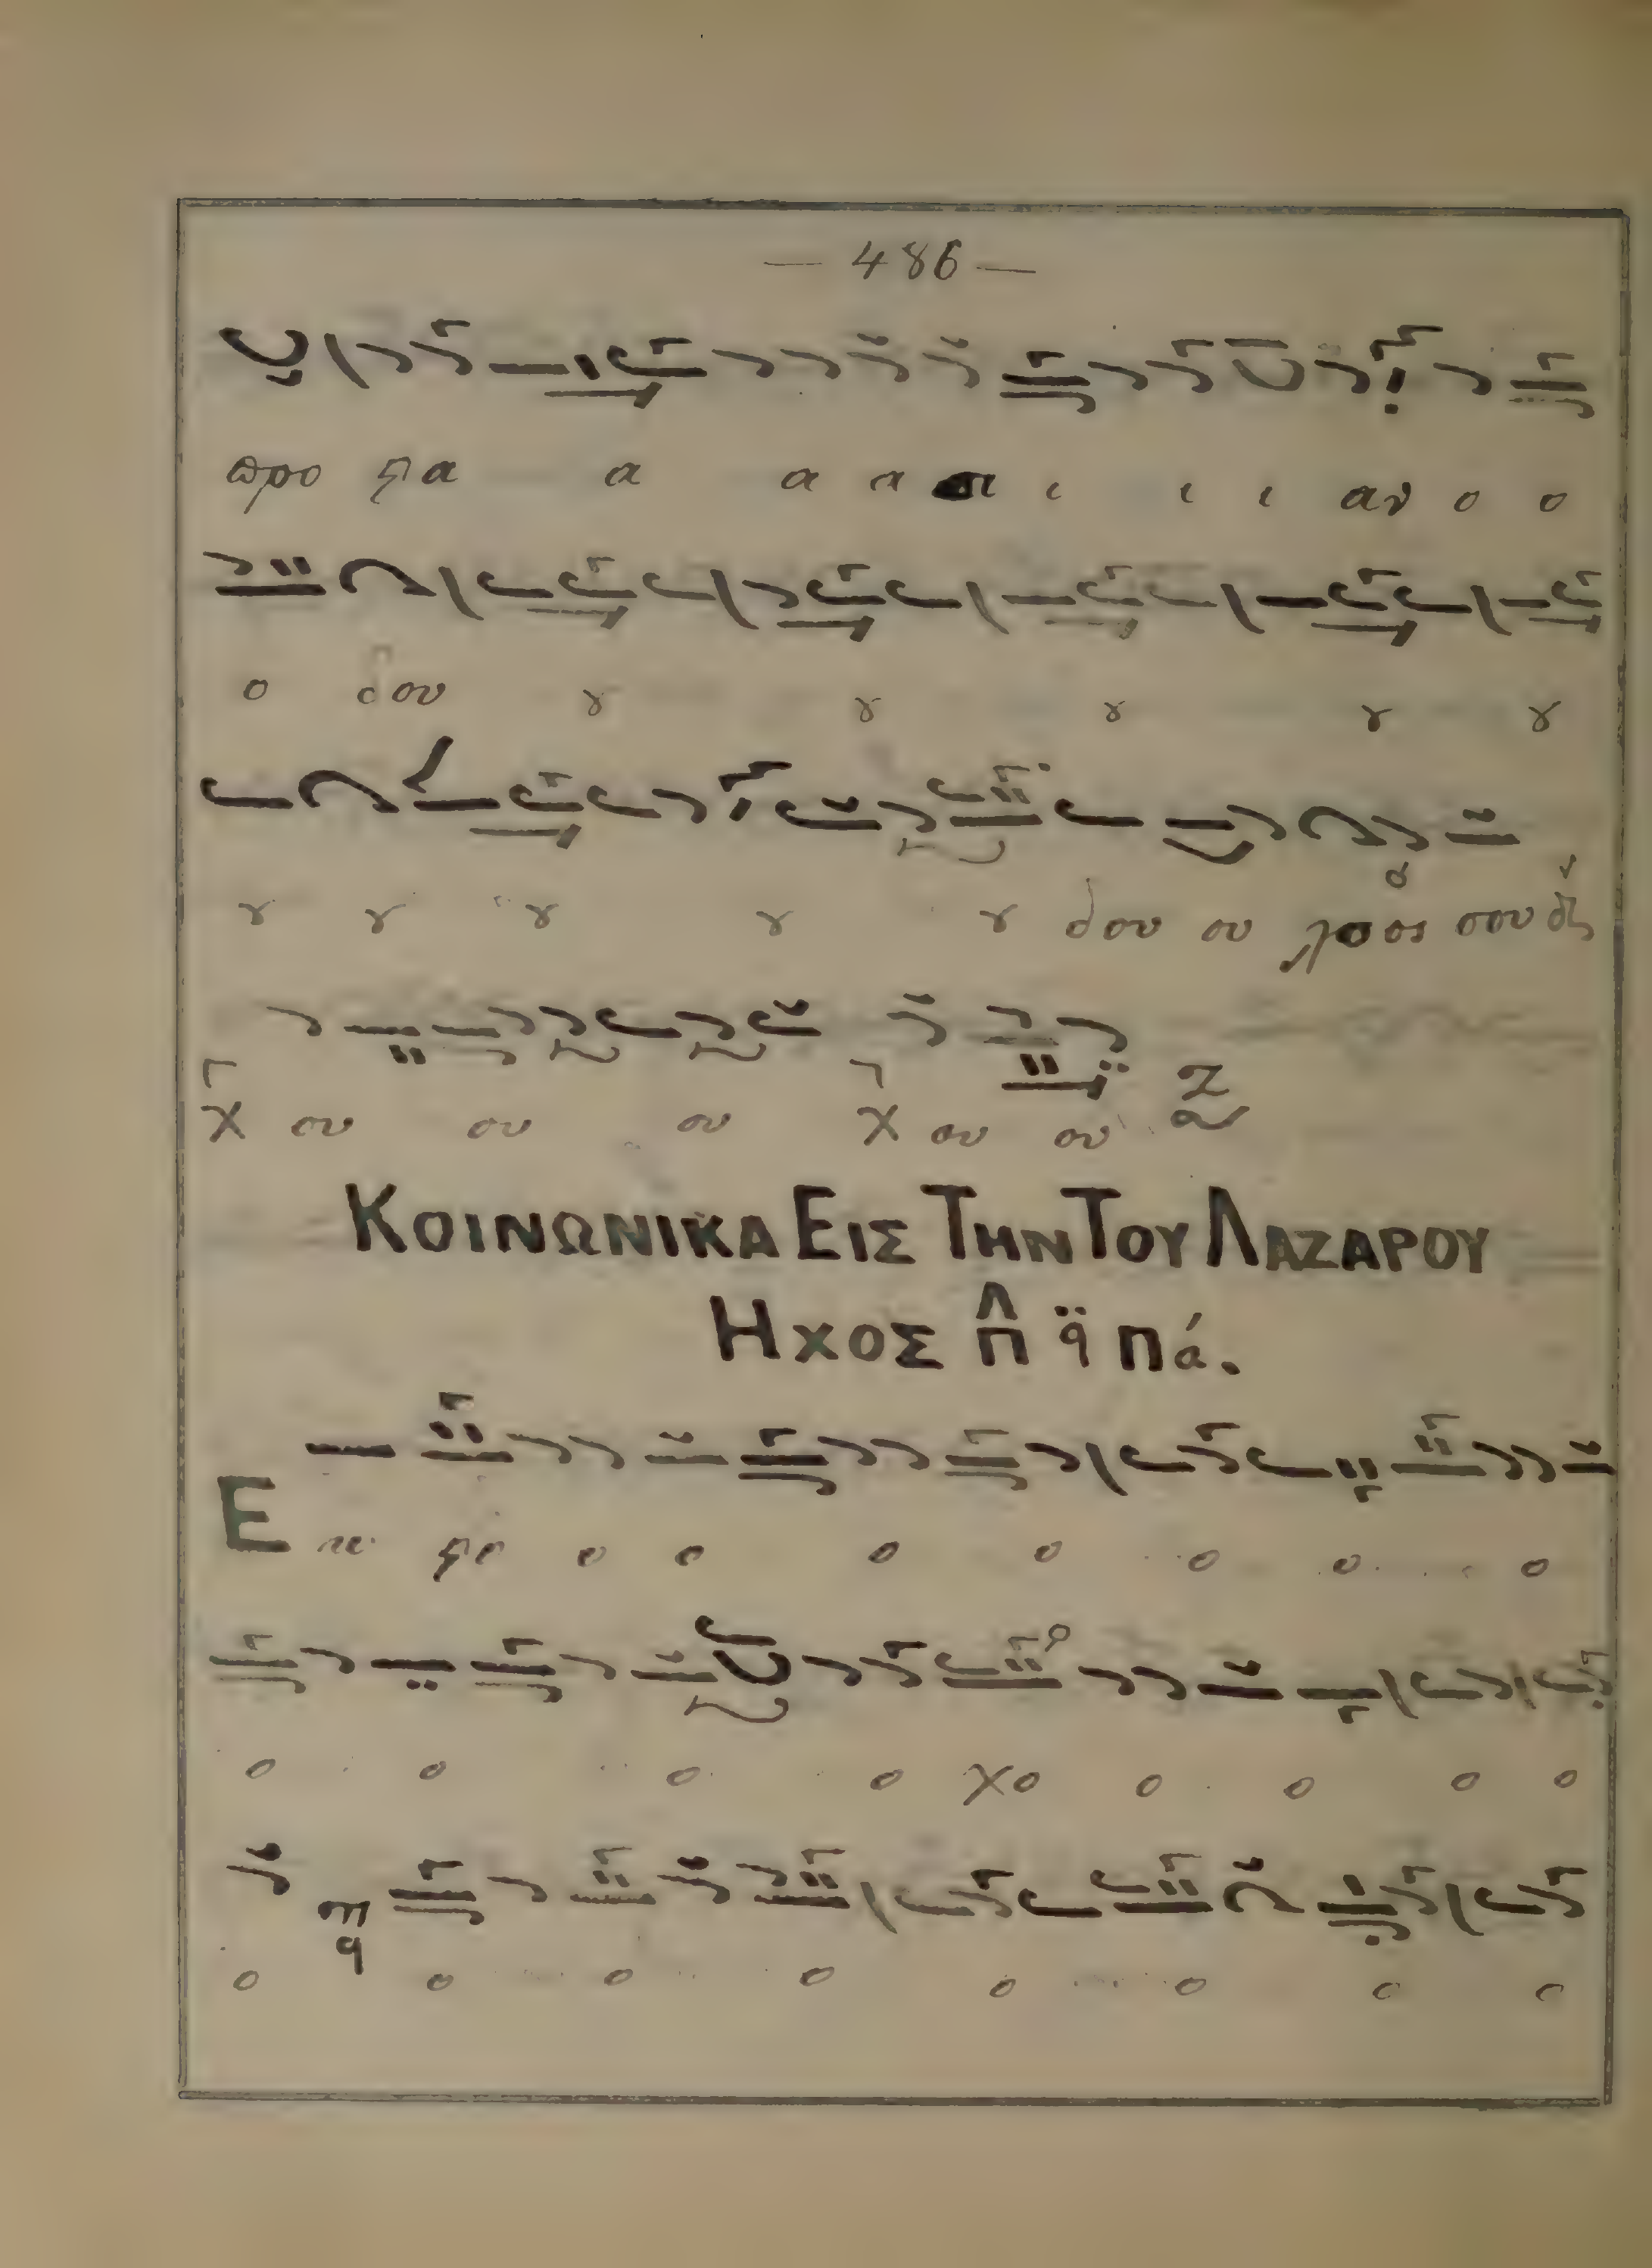 — 486 —
προ ςα α α α ι ι ι αν ο ο
ο δου ȣ ȣ ȣ ȣ ȣ
ȣ ȣ ȣ ȣ ȣ δου ου λοος σου
χ ου ου ου χ ου ου
ΚΟΙΝΩΝΙΚΑ ΕΙΣ ΤΗΝ ΤΟΥ ΛΑΖΑΡΟΥ
ΗΧΟΣ Πά.
Ε ςο ο ο ο ο ο ο ο
ο ο ο ο χο ο ο ο ο
ο ο ο ο ο ο ο ο